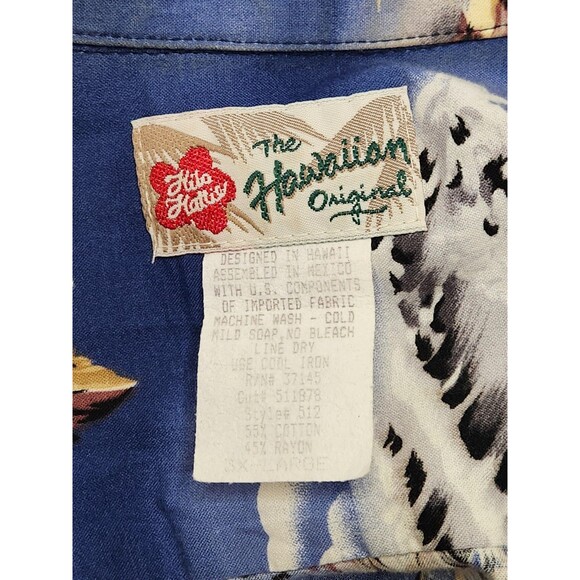 Hilo
Hattie
The
Hawaiian
Original
DESIGNED IN HAWAII
ASSEMBLED IN MEXICO
WITH U.S. COMPONENTS
OF IMPORTED FABRIC
MACHINE WASH - COLD
MILD SOAP,NO BLEACH
LINE DRY
USE COOL IRON
RPN# 37145
Cut# 511878
Style# 512
55% COTTON
45% RAYON
3X-LARGE